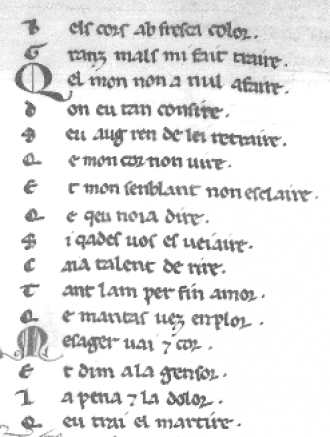 B els cors ab fresca color.
G ranz mals mi fait traire.
Q el mon non a nul afaire.
D on eu tan consire.
S eu aug ren de lei retraire.
Q e mon cor non uire.
E t mon senblant non esclaire.
Q e qeu noia dire.
S i qades uos es ueiaire.
C aia talent de rire.
T ant lam per fin amor.
Q e mantas uez enplor.
M esager uai ⁊ cor.
E t dim ala gensor.
L a pena ⁊ la dolor.
Q eu trai el martire.